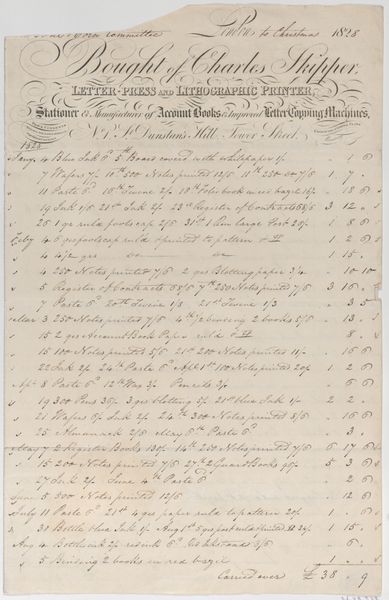 Committee London to Christmas 1828
Bought of Charles Skipper,
LETTER-PRESS AND LITHOGRAPHIC PRINTER,
Stationer & Manufacturer of Account Books & Improved Letter Copying Machines,
No. 1, St. Dunstan's Hill, Tower Street.
1828
4 Blue Ink 6d 5th Board covered with white paper 1/- 1 6
7 Paper 7/- 15th 500 Notes printed 12/6 11th 250 7/6 1 7
11 Paste 6d 15th Twine 2/- 18th Folio book in red bazil 16/- 18 6
19 Ink 1/6 21st Ink 2/- 23rd Register of Contracts 68/6 3 12
26 1 qr ruld foolscap 2/6 31st 1 Rm large Post 1 8 6
Feby 4 6 qrs foolscap ruld & printed to pattern 1 2 6
4 4/2 qrs 1 15
4 250 Notes printed 7/6 2 qrs Blotting paper 3/4 10 10
5 Register of Contracts 58/6 7th 250 Notes printed 7/6 3 16
7 Paste 6d 20th Twine 1/6 21st Twine 1/3 3 3
Mar 3 250 Notes printed 7/6 binding 2 books 5/6 13
15 2 qrs Account Book Paper ruld 8
15 100 Notes printed 5/6 21st 200 Notes printed 11/- 16 6
22 Ink 2/- 24th Paste 6d Apl 1st 100 Notes printed 1 2 6
Apl 8 Paste 6d 12th Wax 3/- Pencils 3/- 6 6
19 300 Pens 36/- 3 qrs blotting 5/- 21st blue Ink 1/- 2 2
21 Wafers 6/- Ink 2/- 24th 300 Notes printed 8/6 16 6
25 Almanack 2/6 May 6th Paste 6d 3
May 7 2 Register Books 130/- 14th 250 Notes printed 7/6 6 17 6
15 200 Notes printed 27th 2 Guard Books 5 3 6
27 Ink 2/- June 4th Paste 6d 2 6
June 5 500 Notes printed 12/6 12 6
July 11 Paste 6d 21st 4 qrs paper ruld to pattern 20/- 1 6
31 Bottle blue Ink 1/- Augt 1st 5 qrs post ruld & printed 1 15
Aug 4 Bottle ink 2/- red ink 6d Inkstands 3/6 6
5 Binding 2 books in red bazil 1
Carried over £38 9